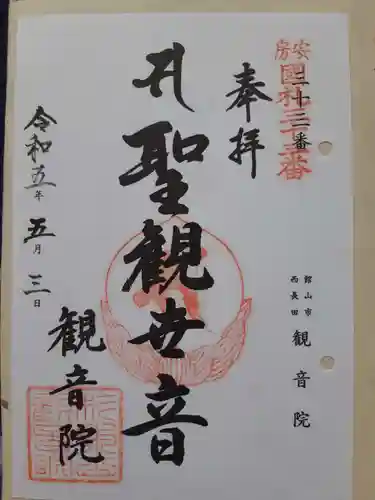 安房
國札三十三番
三十三番
奉拝
館山市
西長田
観音院
聖観世音
令和五年五月三日
観音院